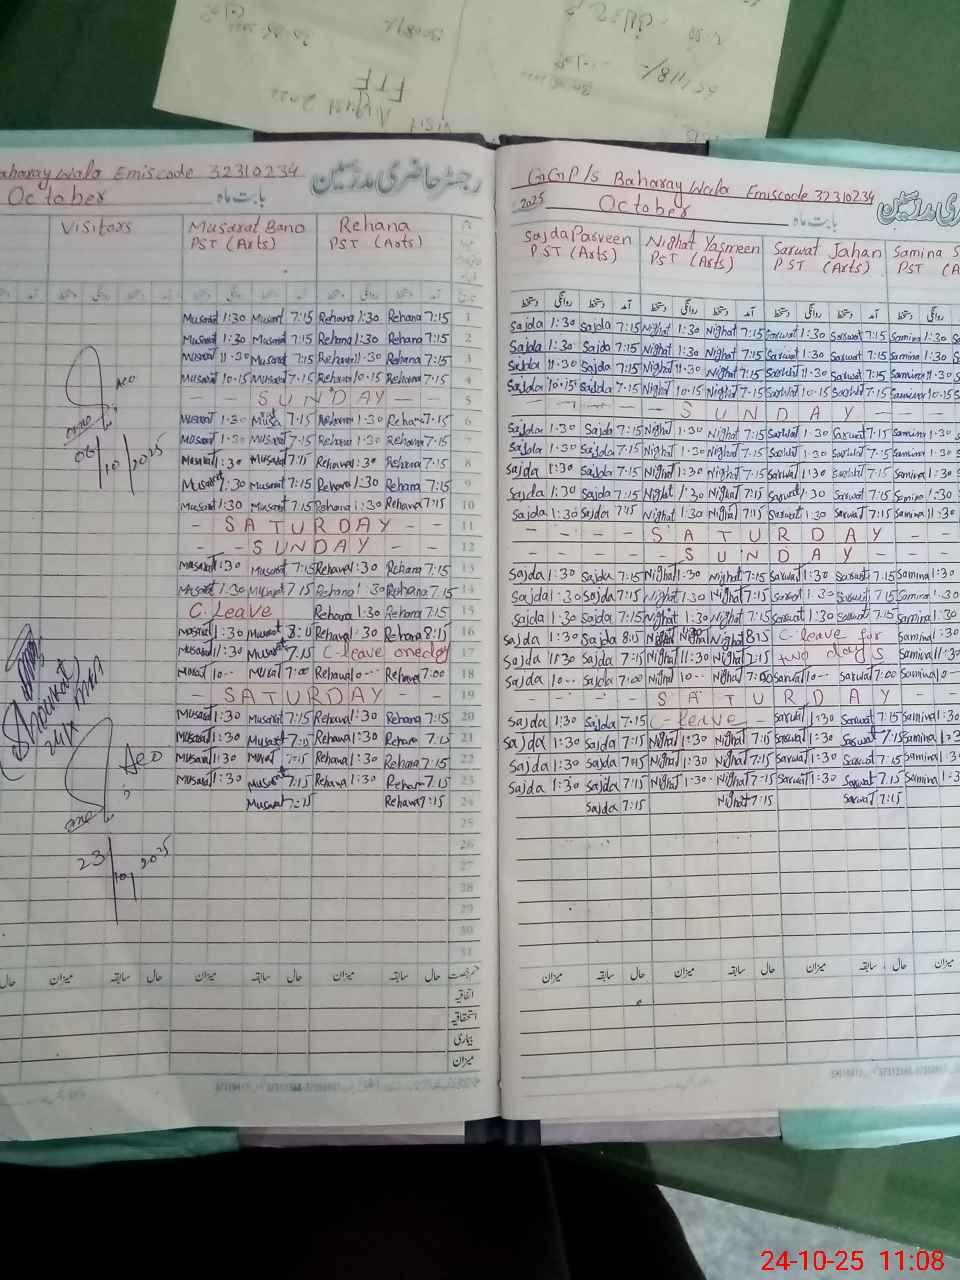 Baharay Wala Emiscode 32310234
رجسٹر حاضری مدرسین
October
بابت ماہ
Visitors
Musarat Bano
PST (Arts)
Rehana
PST (Arts)
Musarat 1:30 Musarat 7:15 Rehana 1:30 Rehana 7:15 1
Musarat 1:30 Musarat 7:15 Rehana 1:30 Rehana 7:15 2
Musarat 11:30 Musarat 7:15 Rehana 11:30 Rehana 7:15 3
Musarat 10:15 Musarat 7:15 Rehana 10:15 Rehana 7:15 4
- - SUNDAY - - 5
Musarat 1:30 Musarat 7:15 Rehana 1:30 Rehana 7:15 6
Musarat 1:30 Musarat 7:15 Rehana 1:30 Rehana 7:15 7
Musarat 1:30 Musarat 7:15 Rehana 1:30 Rehana 7:15 8
Musarat 1:30 Musarat 7:15 Rehana 1:30 Rehana 7:15 9
Musarat 1:30 Musarat 7:15 Rehana 1:30 Rehana 7:15 10
- SATURDAY - - 11
- - SUNDAY - - 12
Musarat 1:30 Musarat 7:15 Rehana 1:30 Rehana 7:15 13
Musarat 1:30 Musarat 7:15 Rehana 1:30 Rehana 7:15 14
C. Leave Rehana 1:30 Rehana 7:15 15
Musarat 1:30 Musarat Rehana 1:30 Rehana 8:15 16
Musarat 11:30 Musarat 7:15 C-leave oneday 17
Musarat 10-- Musarat 7:00 Rehana 10-- Rehana 7:00 18
- SATURDAY - - 19
Musarat 1:30 Musarat 7:15 Rehana 1:30 Rehana 7:15 20
Musarat 1:30 Musarat 7:15 Rehana 1:30 Rehana 7:15 21
Musarat 1:30 Musarat 7:15 Rehana 1:30 Rehana 7:15 22
Musarat 1:30 Musarat 7:15 Rehana 1:30 Rehana 7:15 23
Musarat 7:15 Rehana 7:15 24
25
26
27
28
29
30
31
AEO
06/10/2025
Shoukat
AEO
23/10/2025
حال میزان سابقہ حال میزان سابقہ حال میزان سابقہ حال
اتفاقیہ
استحقاقیہ
بیماری
میزان
GGP/S Baharay Wala Emiscode 32310234
2025 October
بابت ماہ
Sajda Parveen
PST (Arts)
Nighat Yasmeen
PST (Arts)
Sarwat Jahan
PST (Arts)
Samina S
PST (A
دستخط روانگی دستخط آمد دستخط روانگی دستخط آمد دستخط روانگی دستخط آمد دستخط روانگی
Sajda 1:30 Sajda 7:15 Nighat 1:30 Nighat 7:15 Sarwat 1:30 Sarwat 7:15 Samina 1:30
Sajda 1:30 Sajda 7:15 Nighat 1:30 Nighat 7:15 Sarwat 1:30 Sarwat 7:15 Samina 1:30
Sajda 11:30 Sajda 7:15 Nighat 11:30 Nighat 7:15 Sarwat 11:30 Sarwat 7:15 Samina 11:30
Sajda 10:15 Sajda 7:15 Nighat 10:15 Nighat 7:15 Sarwat 10:15 Sarwat 7:15 Samina 10:15
- - - - - SUNDAY - - -
Sajda 1:30 Sajda 7:15 Nighat 1:30 Nighat 7:15 Sarwat 1:30 Sarwat 7:15 Samina 1:30
Sajda 1:30 Sajda 7:15 Nighat 1:30 Nighat 7:15 Sarwat 1:30 Sarwat 7:15 Samina 1:30
Sajda 1:30 Sajda 7:15 Nighat 1:30 Nighat 7:15 Sarwat 1:30 Sarwat 7:15 Samina 1:30
Sajda 1:30 Sajda 7:15 Nighat 1:30 Nighat 7:15 Sarwat 1:30 Sarwat 7:15 Samina 1:30
Sajda 1:30 Sajda 7:15 Nighat 1:30 Nighat 7:15 Sarwat 1:30 Sarwat 7:15 Samina 11:30
- - - - SATURDAY - -
- - - - - SUNDAY - - -
Sajda 1:30 Sajda 7:15 Nighat 1:30 Nighat 7:15 Sarwat 1:30 Sarwat 7:15 Samina 1:30
Sajda 1:30 Sajda 7:15 Nighat 1:30 Nighat 7:15 Sarwat 1:30 Sarwat 7:15 Samina 1:30
Sajda 1:30 Sajda 7:15 Nighat 1:30 Nighat 7:15 Sarwat 1:30 Sarwat 7:15 Samina 1:30
Sajda 1:30 Sajda 8:15 Nighat 1:30 Nighat 8:15 C-leave for Samina 1:30
Sajda 11:30 Sajda 7:15 Nighat 11:30 Nighat 7:15 two days Samina 11:30
Sajda 10-- Sajda 7:00 Nighat 10-- Nighat 7:00 Sarwat 10-- Sarwat 7:00 Samina 10--
- - - - SATURDAY - -
Sajda 1:30 Sajda 7:15 C-leave - Sarwat 1:30 Sarwat 7:15 Samina 1:30
Sajda 1:30 Sajda 7:15 Nighat 1:30 Nighat 7:15 Sarwat 1:30 Sarwat 7:15 Samina 1:30
Sajda 1:30 Sajda 7:15 Nighat 1:30 Nighat 7:15 Sarwat 1:30 Sarwat 7:15 Samina 1:30
Sajda 1:30 Sajda 7:15 Nighat 1:30 Nighat 7:15 Sarwat 1:30 Sarwat 7:15 Samina 1:30
Sajda 7:15 Nighat 7:15 Sarwat 7:15
میزان سابقہ حال میزان سابقہ حال میزان سابقہ حال میزان
24-10-25 11:08